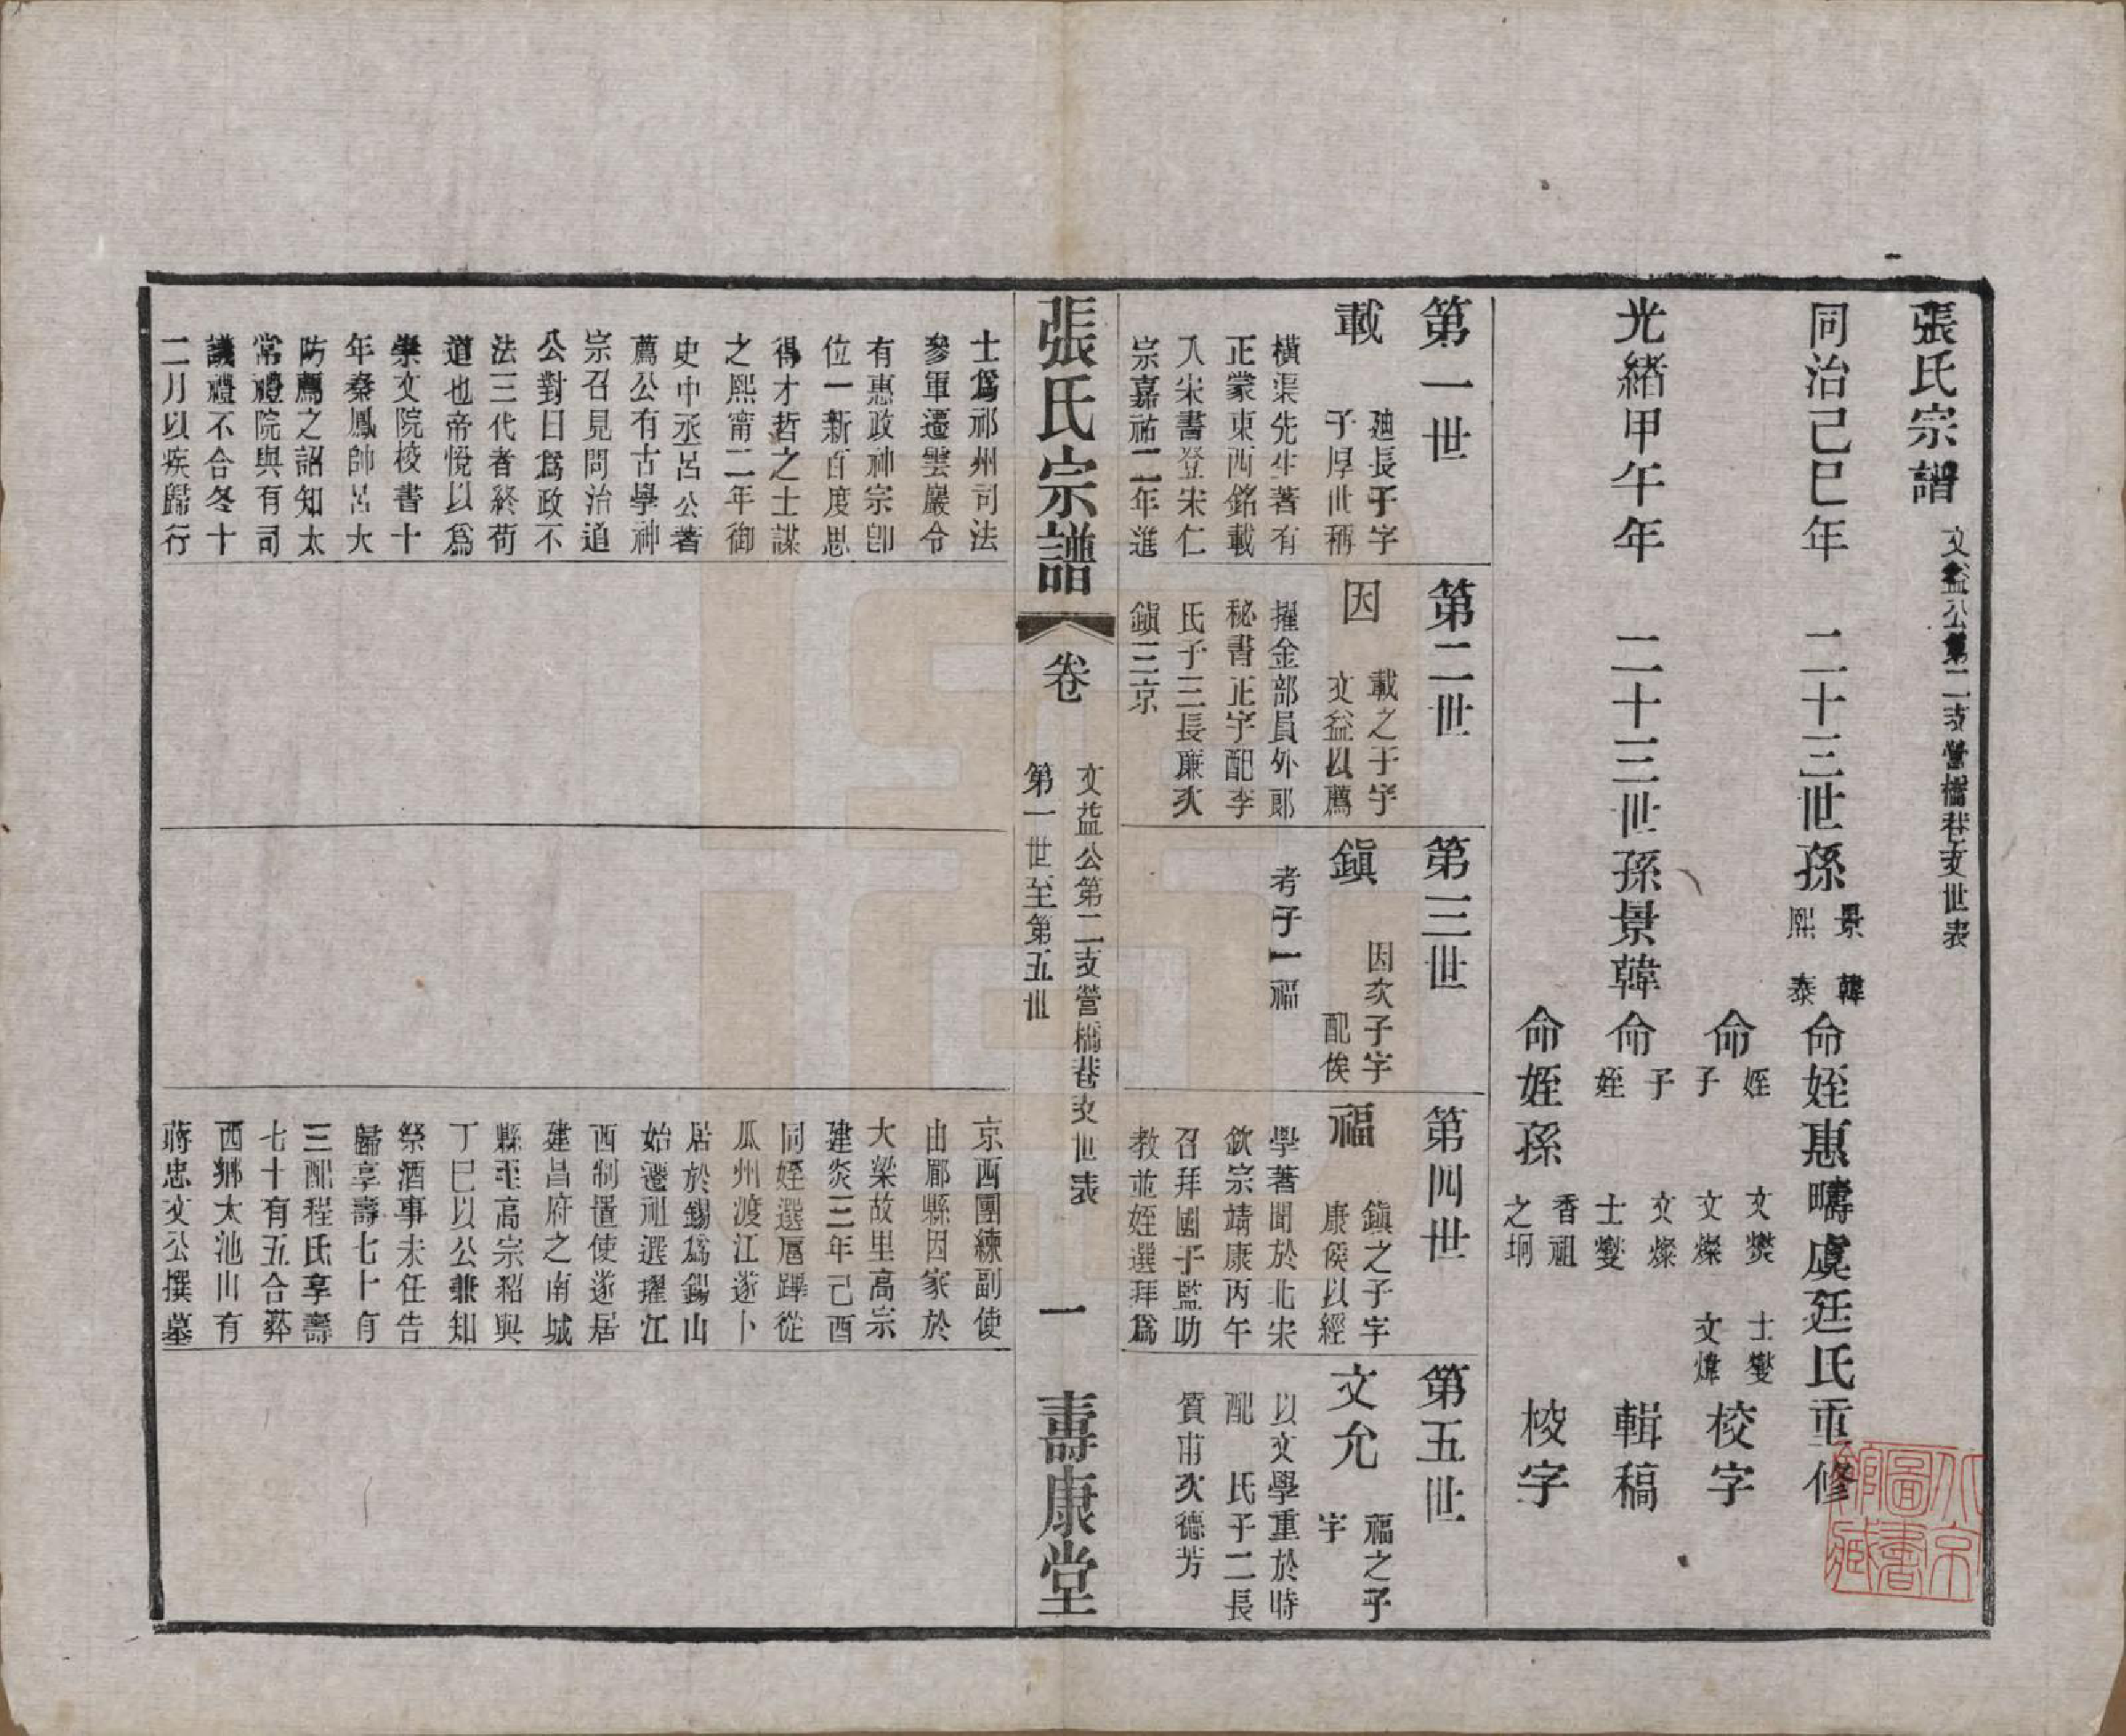 張氏宗譜 文益公第二支營橋巷支世表
同治己巳年 二十三世孫景韓熙泰命姪惠疇虞廷氏重修
命姪子 文爕 士燮 文燦 文煒 校字
光緒甲午年 二十三世孫景韓命子姪 文燦 士燮 輯稿
命姪孫 香祖 之垌 校字
第一世
載 廸長子字
子厚世稱
橫渠先生著有
正蒙東西銘載
入宋書登宋仁
宗嘉祐二年進
第二世
因 載之子字
文益以薦
擢金部員外郎
秘書正字配李
氏子三長廉次
鎭三京
第三世
鎭 因次子字
配俟
考子一福
第四世
福 鎭之子字
康侯以經
學著聞於北宋
欽宗靖康丙午
召拜國子監助
教並姪選拜爲
第五世
文允 福之子
字
以文學重於時
配 氏子二長
質甫次德芳
張氏宗譜 卷 文益公第二支營橋巷支世表
第一世至第五世 一 壽康堂
士爲祁州司法
參軍遷雲巖令
有惠政神宗卽
位一新百度思
得才哲之士謀
之熙甯二年御
史中丞呂公著
薦公有古學神
宗召見問治道
公對曰爲政不
法三代者終苟
道也帝悅以爲
崇文院校書十
年秦鳳帥呂大
防薦之詔知太
常禮院與有司
議禮不合冬十
二月以疾歸行
京西團練副使
由郿縣因家於
大梁故里高宗
建炎三年己酉
同姪選扈蹕從
瓜州渡江遂卜
居於錫爲錫山
始遷祖選擢江
西制置使遂居
建昌府之南城
縣至高宗紹興
丁巳以公兼知
祭酒事未任告
歸享壽七十有
三配程氏享壽
七十有五合葬
西鄉大池山有
蔣忠文公撰墓
北京圖書館藏